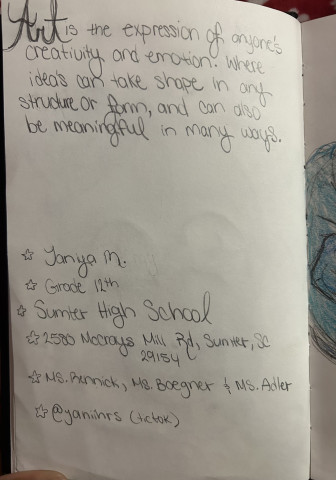 Art is the expression of anyone's
creativity and emotion. Where
ideas can take shape in any
structure or form, and can also
be meaningful in many ways.
☆ Tanya M.
☆ Grade 12th
☆ Sumter High School
☆ 2580 Mccrays Mill Rd, Sumter, SC
29154
☆ Ms. Rennick, Ms. Boegner & Ms. Adler
☆ @yaniihrs (tictok)